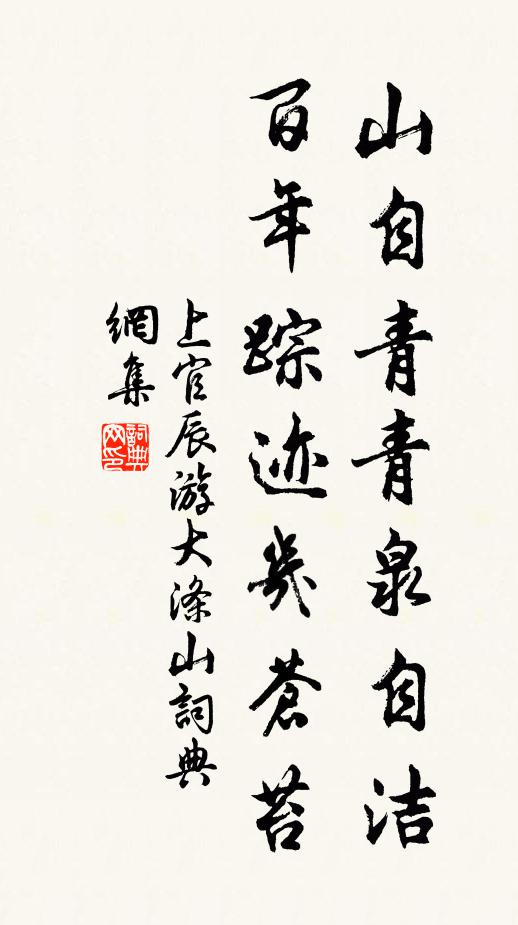 山自青青泉自洁
百年踪迹几苍苔
上官辰游大涤山詞典
網集
詞典網印